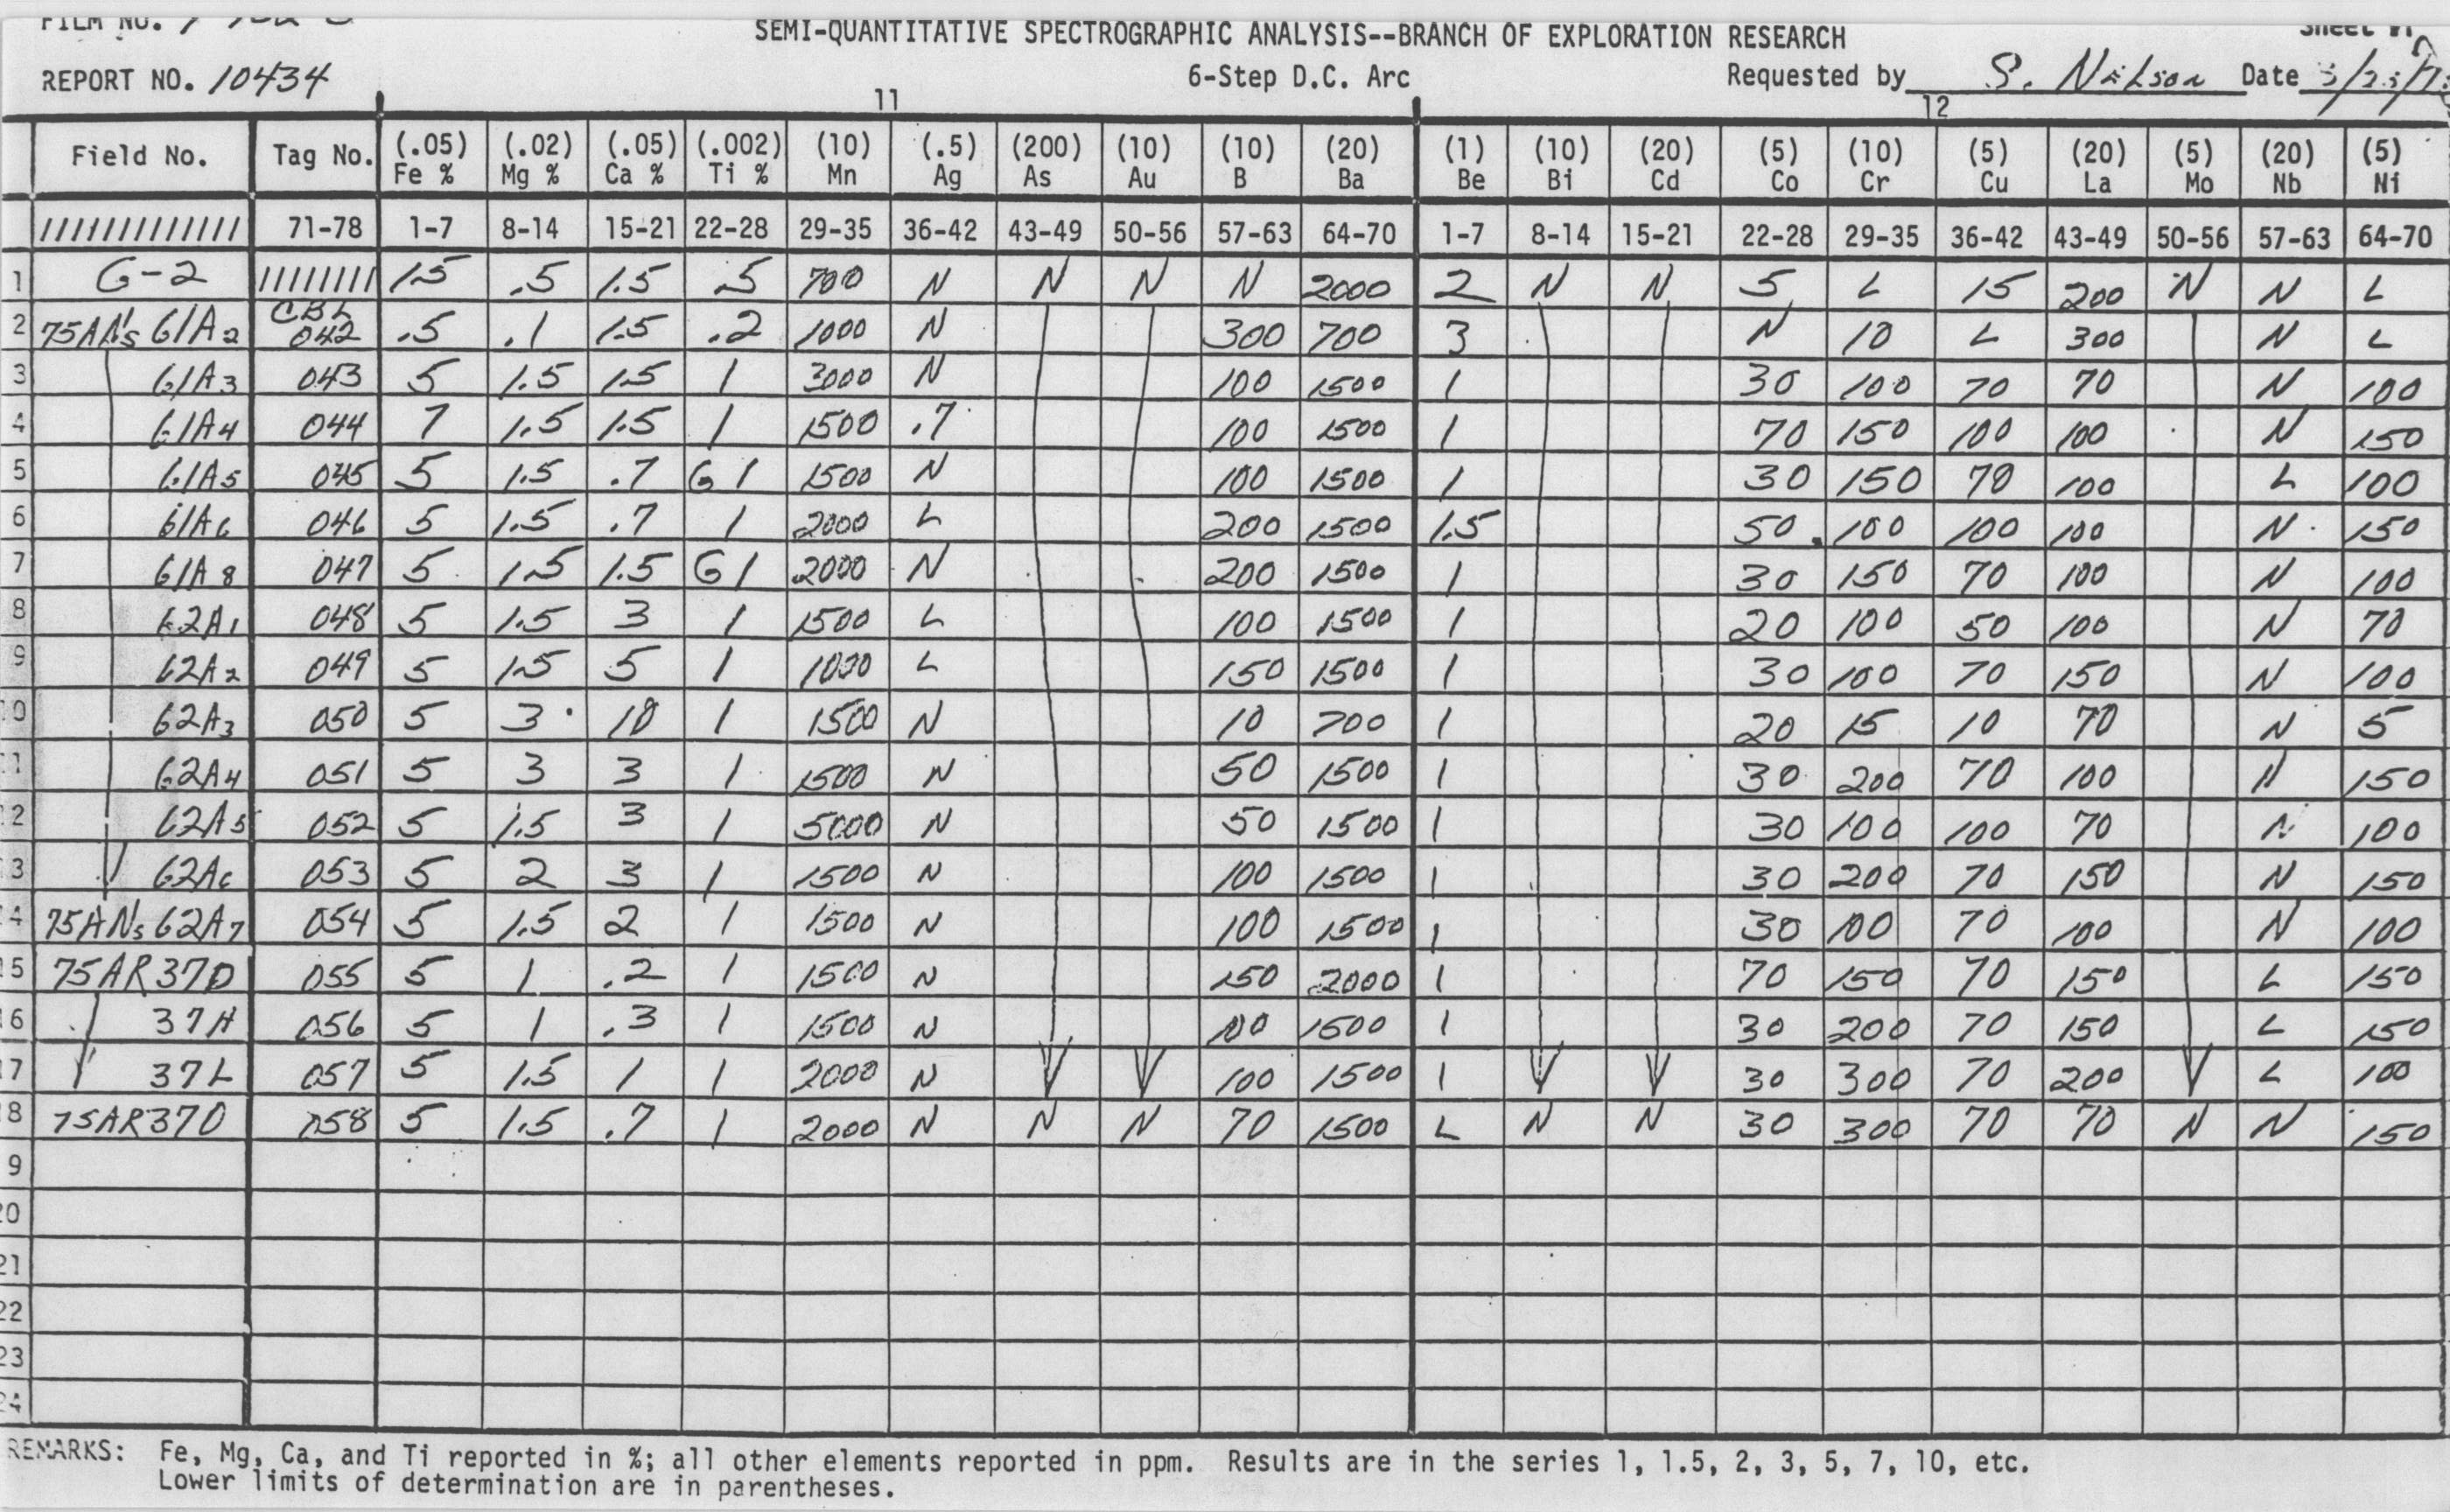 FILM NO.
SEMI-QUANTITATIVE SPECTROGRAPHIC ANALYSIS--BRANCH OF EXPLORATION RESEARCH
Sheet #1
REPORT NO. 10434 6-Step D.C. Arc Requested by S. Nelson Date
11 12
Field No. Tag No. (.05) Fe % (.02) Mg % (.05) Ca % (.002) Ti % (10) Mn (.5) Ag (200) As (10) Au (10) B (20) Ba (1) Be (10) Bi (20) Cd (5) Co (10) Cr (5) Cu (20) La (5) Mo (20) Nb (5) Ni
///////////// 71-78 1-7 8-14 15-21 22-28 29-35 36-42 43-49 50-56 57-63 64-70 1-7 8-14 15-21 22-28 29-35 36-42 43-49 50-56 57-63 64-70
1 G-2 //////// 1.5 .5 1.5 .5 700 N N N N 2000 2 N N 5 L 15 200 N N L
2 75ANs 61A2 CBL 042 .5 .1 1.5 .2 1000 N 300 700 3 N 10 L 300 N L
3 61A3 043 5 1.5 1.5 1 3000 N 100 1500 1 30 100 70 70 N 100
4 61A4 044 7 1.5 1.5 1 1500 .7 100 1500 1 70 150 100 100 N 150
5 61A5 045 5 1.5 .7 G1 1500 N 100 1500 1 30 150 70 100 L 100
6 61A6 046 5 1.5 .7 1 2000 L 200 1500 1.5 50 100 100 100 N 150
7 61A8 047 5 1.5 1.5 G1 2000 N 200 1500 1 30 150 70 100 N 100
8 62A1 048 5 1.5 3 1 1500 L 100 1500 1 20 100 50 100 N 70
9 62A2 049 5 1.5 5 1 1000 L 150 1500 1 30 100 70 150 N 100
10 62A3 050 5 3 10 1 1500 N 10 700 1 20 15 10 70 N 5
11 62A4 051 5 3 3 1 1500 N 50 1500 1 30 200 70 100 N 150
12 62A5 052 5 1.5 3 1 5000 N 50 1500 1 30 100 100 70 N 100
13 62A6 053 5 2 3 1 1500 N 100 1500 1 30 200 70 150 N 150
14 75ANs 62A7 054 5 1.5 2 1 1500 N 100 1500 1 30 100 70 100 N 100
15 75AR37D 055 5 1 .2 1 1500 N 150 2000 1 70 150 70 150 L 150
16 37H 056 5 1 .3 1 1500 N 100 1500 1 30 200 70 150 L 150
17 37L 057 5 1.5 1 1 2000 N 100 1500 1 30 300 70 200 L 100
18 75AR37O 058 5 1.5 .7 1 2000 N N N 70 1500 L N N 30 300 70 70 N N 150
19
20
21
22
23
24
REMARKS: Fe, Mg, Ca, and Ti reported in %; all other elements reported in ppm. Results are in the series 1, 1.5, 2, 3, 5, 7, 10, etc.
Lower limits of determination are in parentheses.